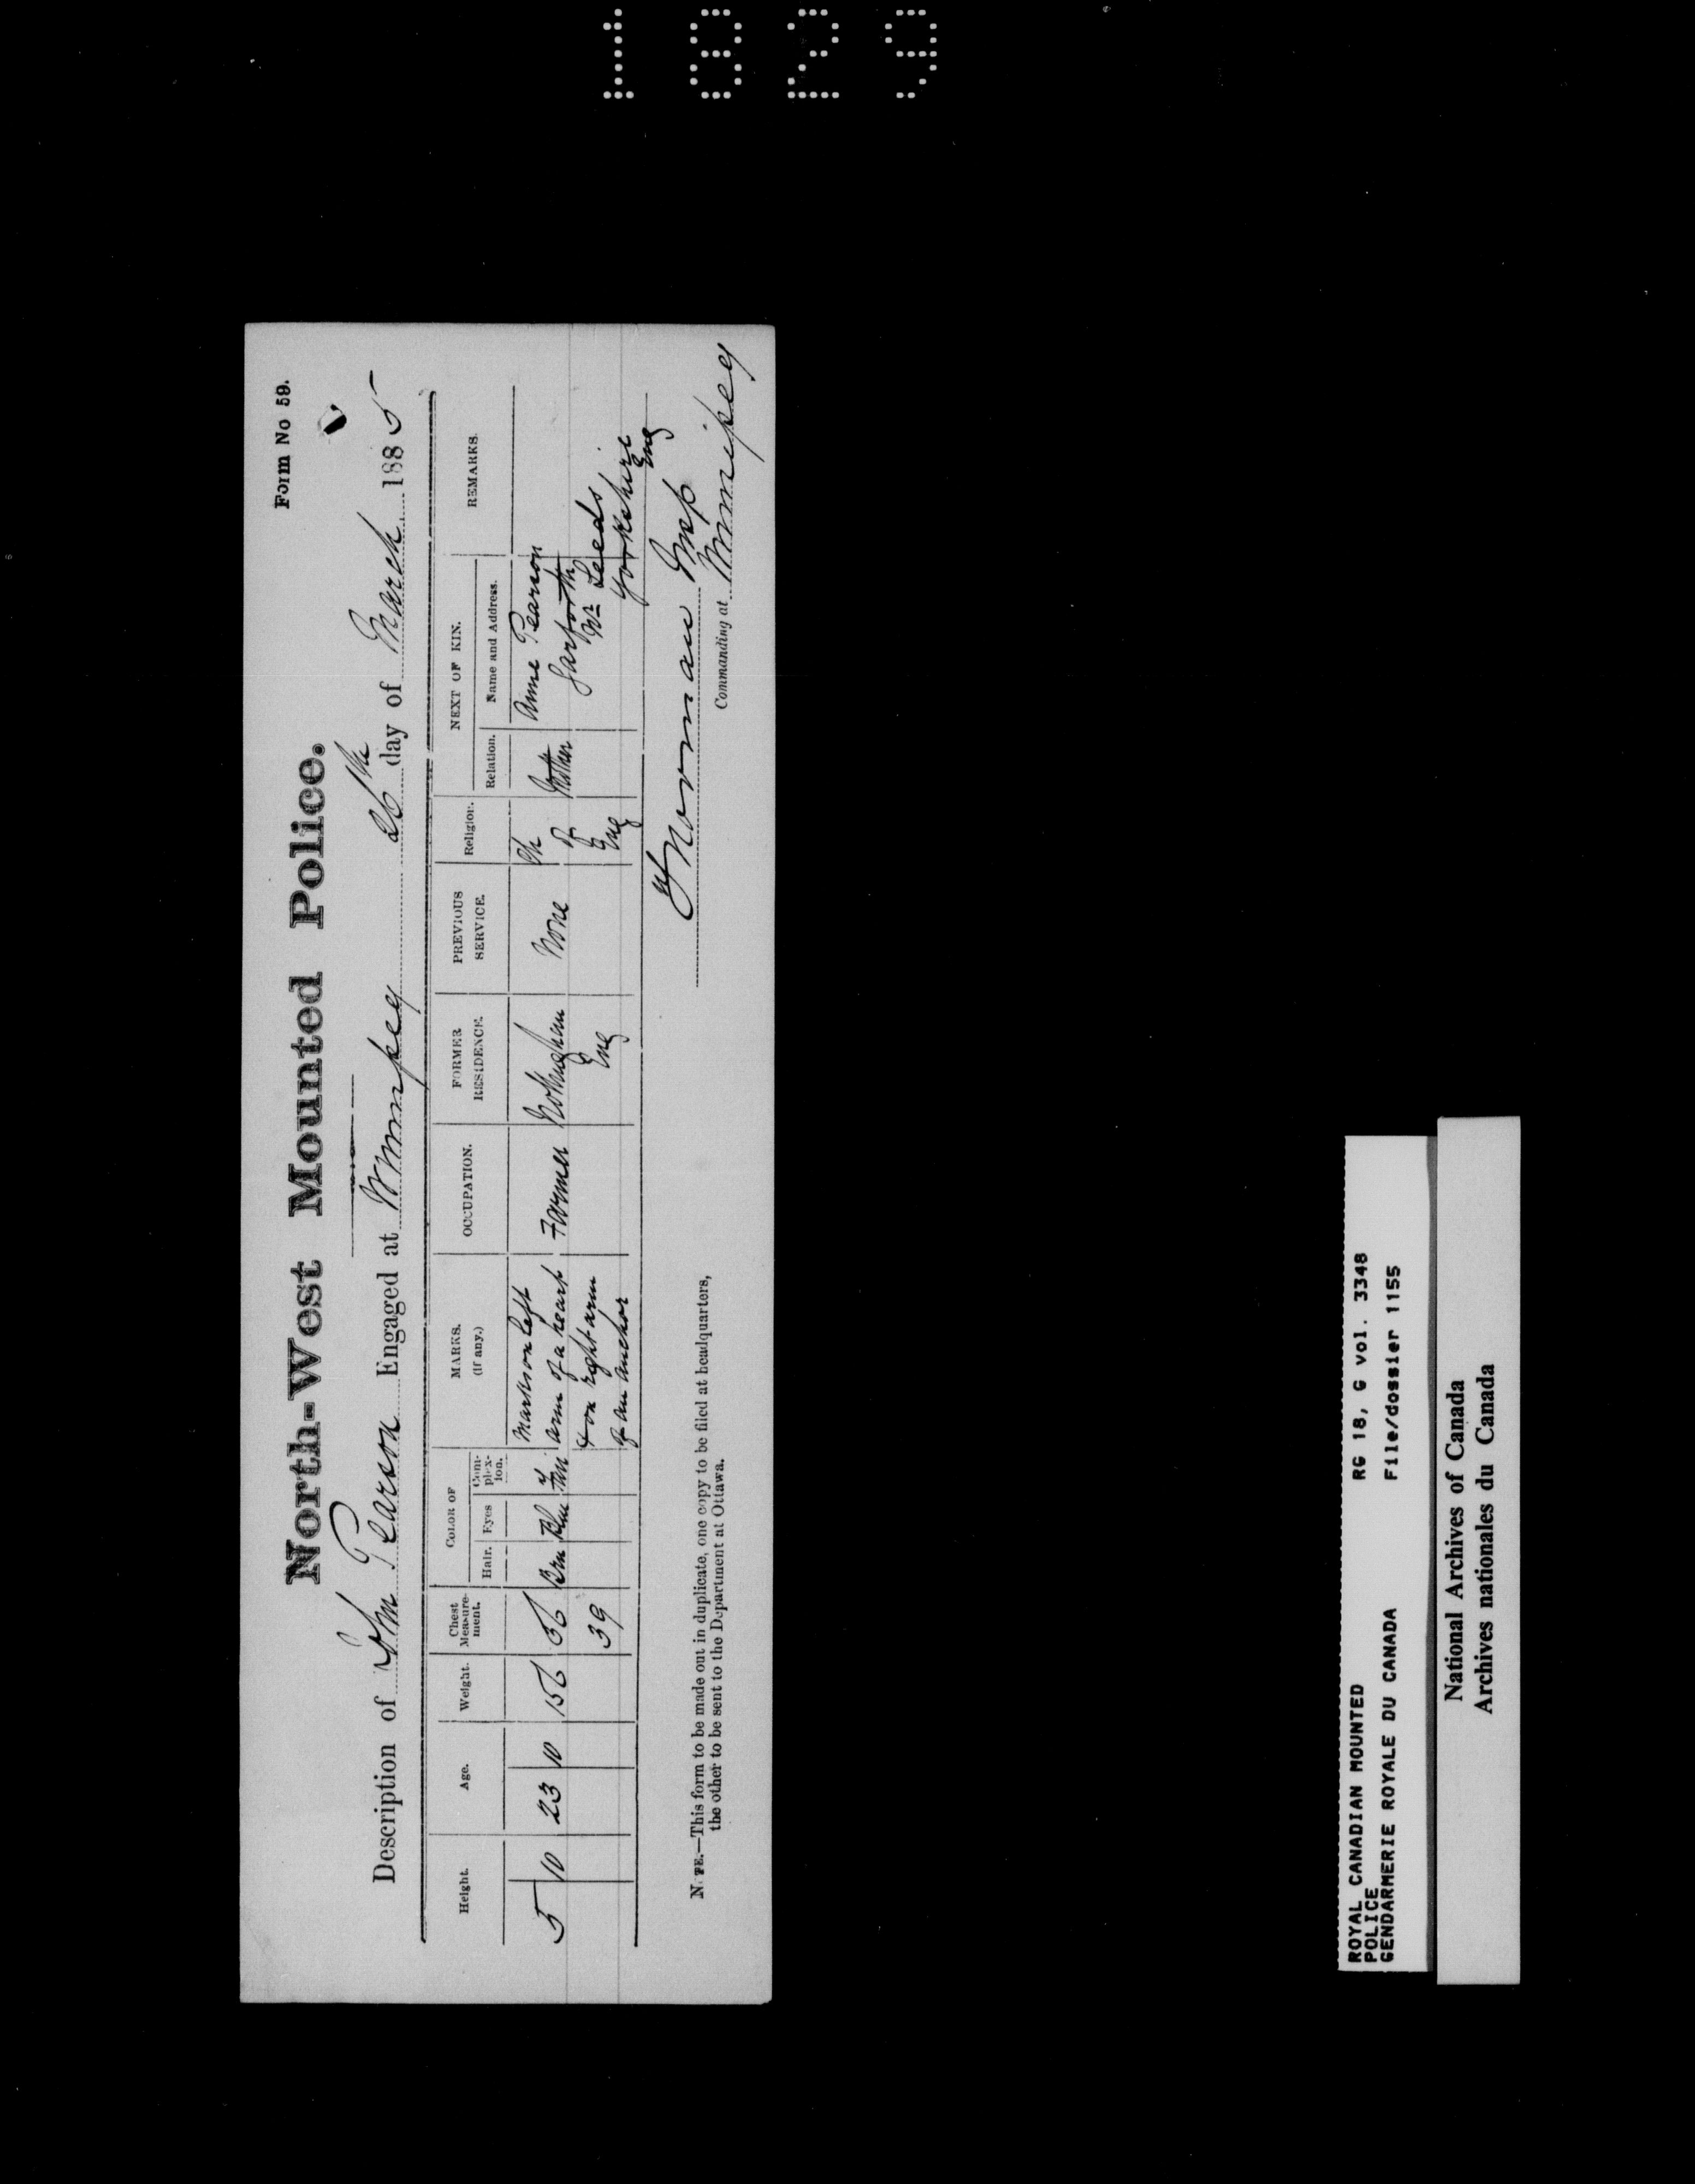 1829
Form No 59.
North-West Mounted Police.
Description of Jhn Pearson Engaged at Winnipeg 26th day of March 1885
Height. Age. Weight. Chest Measurement. COLOR OF Hair. Eyes Complexion. MARKS. (if any.) OCCUPATION. FORMER RESIDENCE. PREVIOUS SERVICE. Religion. NEXT OF KIN. Relation. Name and Address. REMARKS.
5 10 23 10 156 36 Brn Blue Marks on left Farmer Nottingham None Ch Mother Anne Pearson
39 arm of a heart Eng of Garforth
& on right arm Eng Nr Leeds
of an anchor Yorkshire
Eng
Norman Insp
Commanding at Winnipeg
NOTE.—This form to be made out in duplicate, one copy to be filed at headquarters,
the other to be sent to the Department at Ottawa.
ROYAL CANADIAN MOUNTED RG 18, G vol. 3348
POLICE
GENDARMERIE ROYALE DU CANADA File/dossier 1155
National Archives of Canada
Archives nationales du Canada